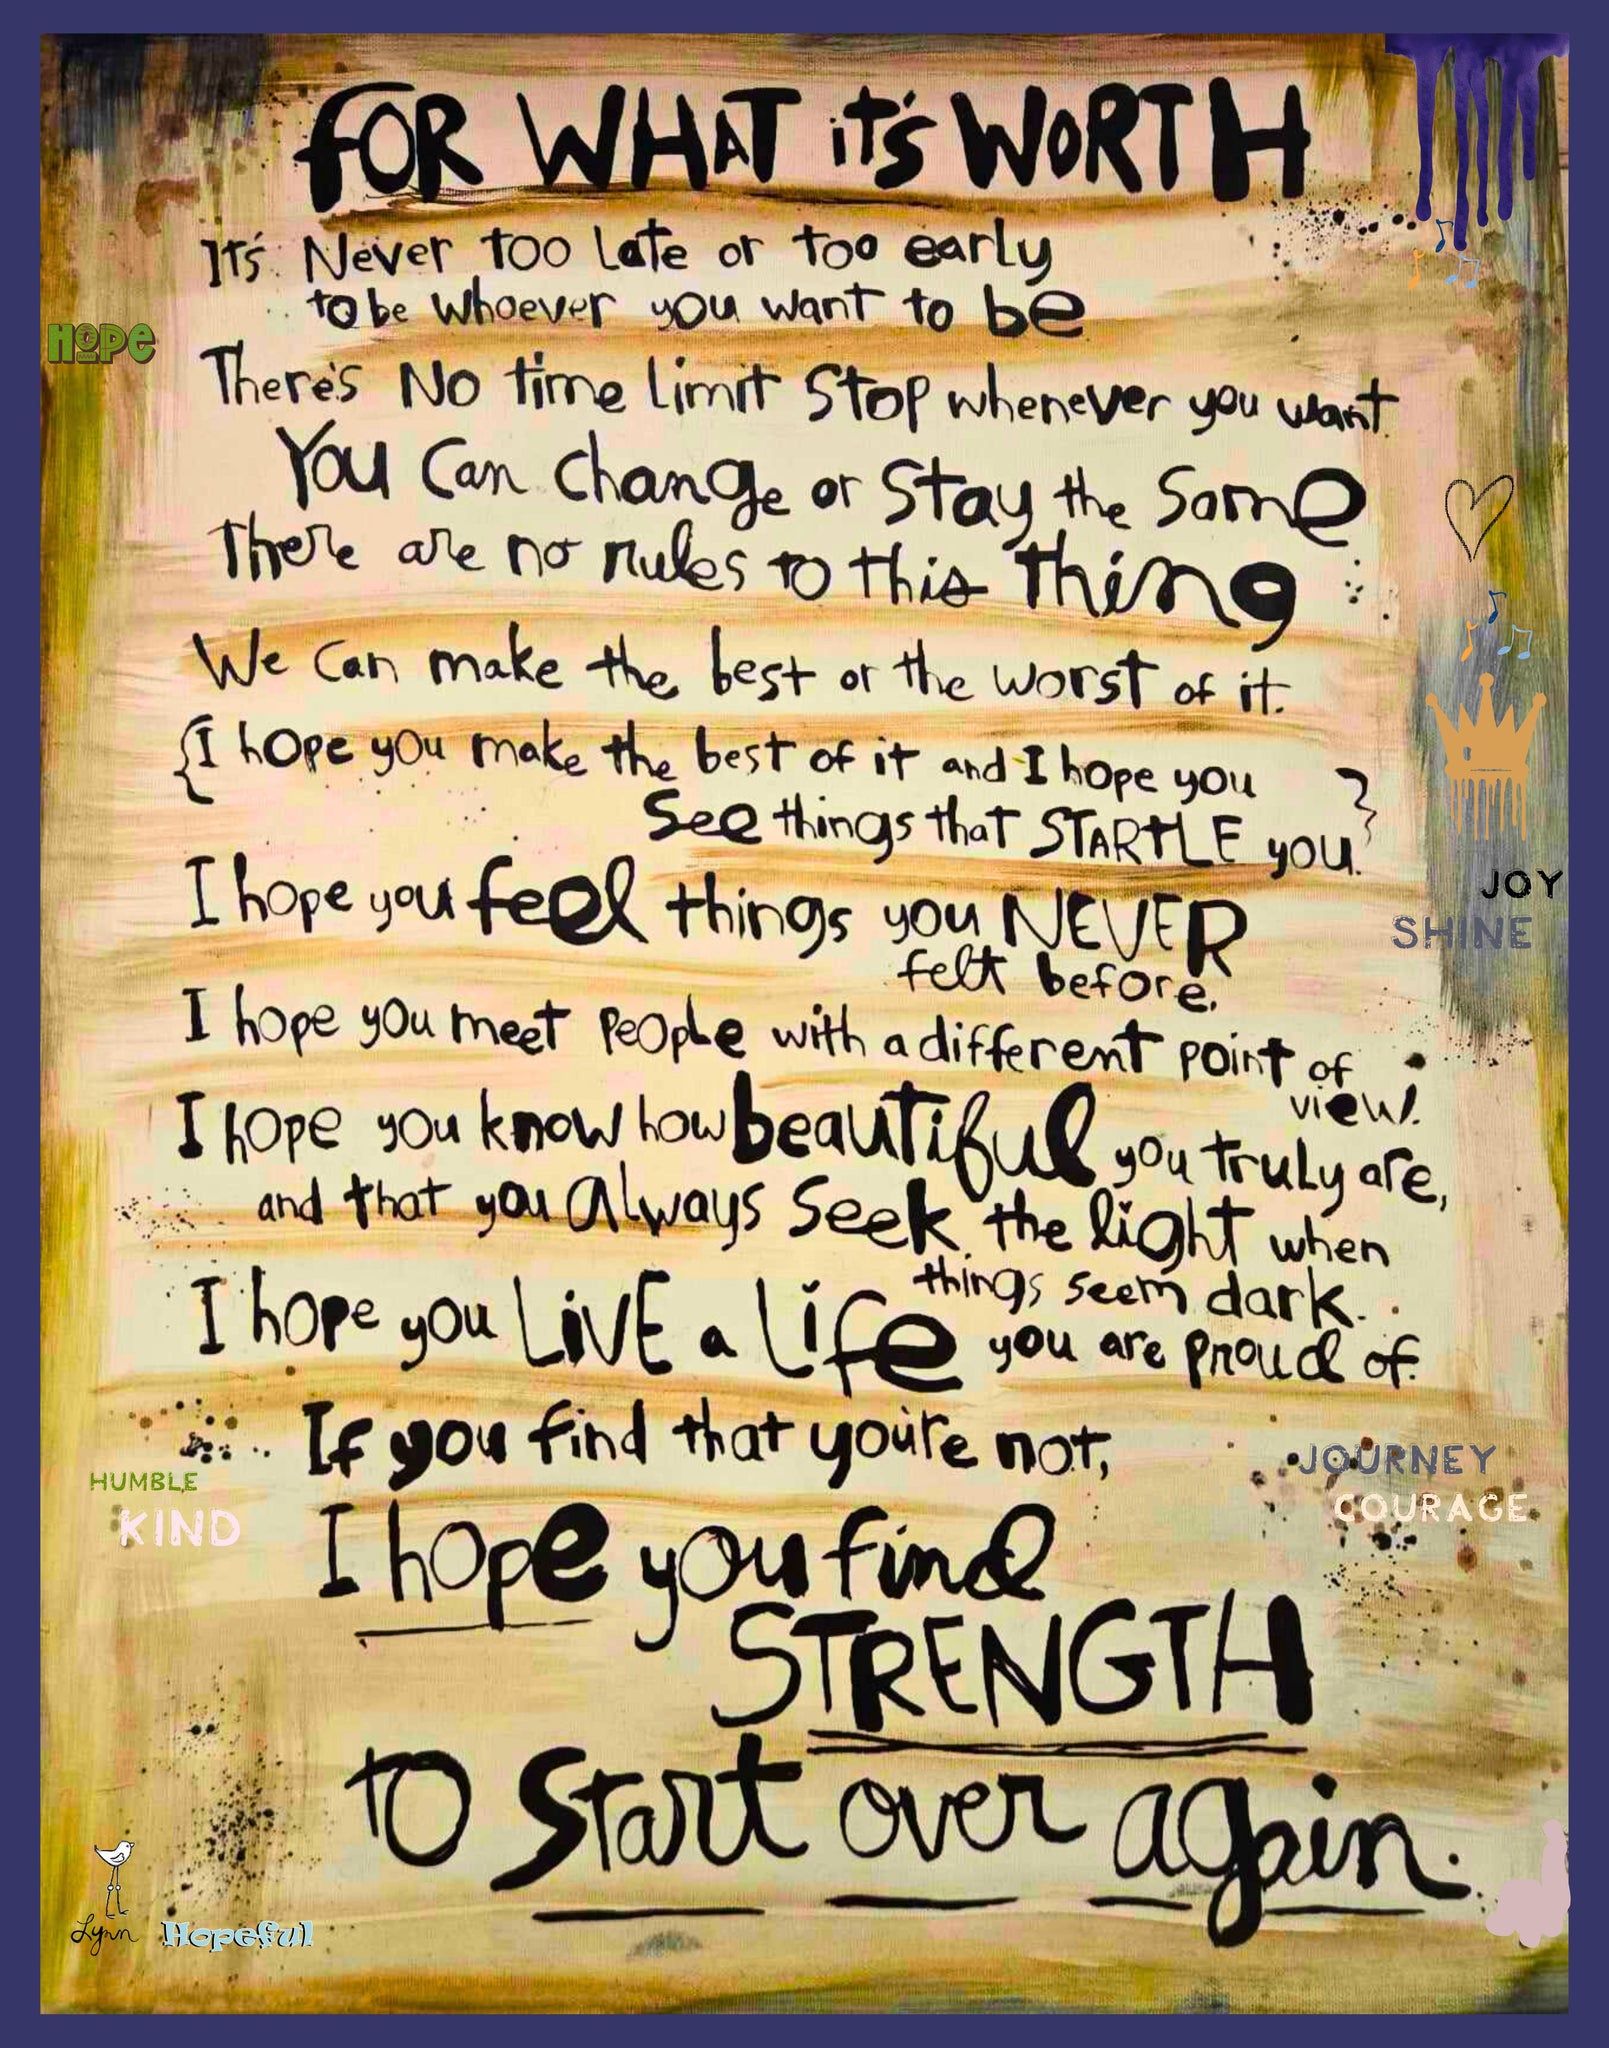 FOR WHAT it's WORTH
It's Never too late or too early
to be whoever you want to be
HOPE
There's No time limit Stop whenever you want.
You Can change or stay the Same
There are no rules to this thing
We Can make the best or the worst of it.
{I hope you make the best of it and I hope you
See things that STARTLE you.}
JOY
SHINE
I hope you feel things you NEVER
felt before.
I hope you meet people with a different point of
view.
I hope you know how beautiful you truly are,
and that you always seek the light when
things seem dark.
I hope you LiVE a Life you are proud of.
If you find that you're not,
JOURNEY
COURAGE
HUMBLE
KIND
I hope you find
STRENGTH
to Start over again.
Lynn
Hopeful